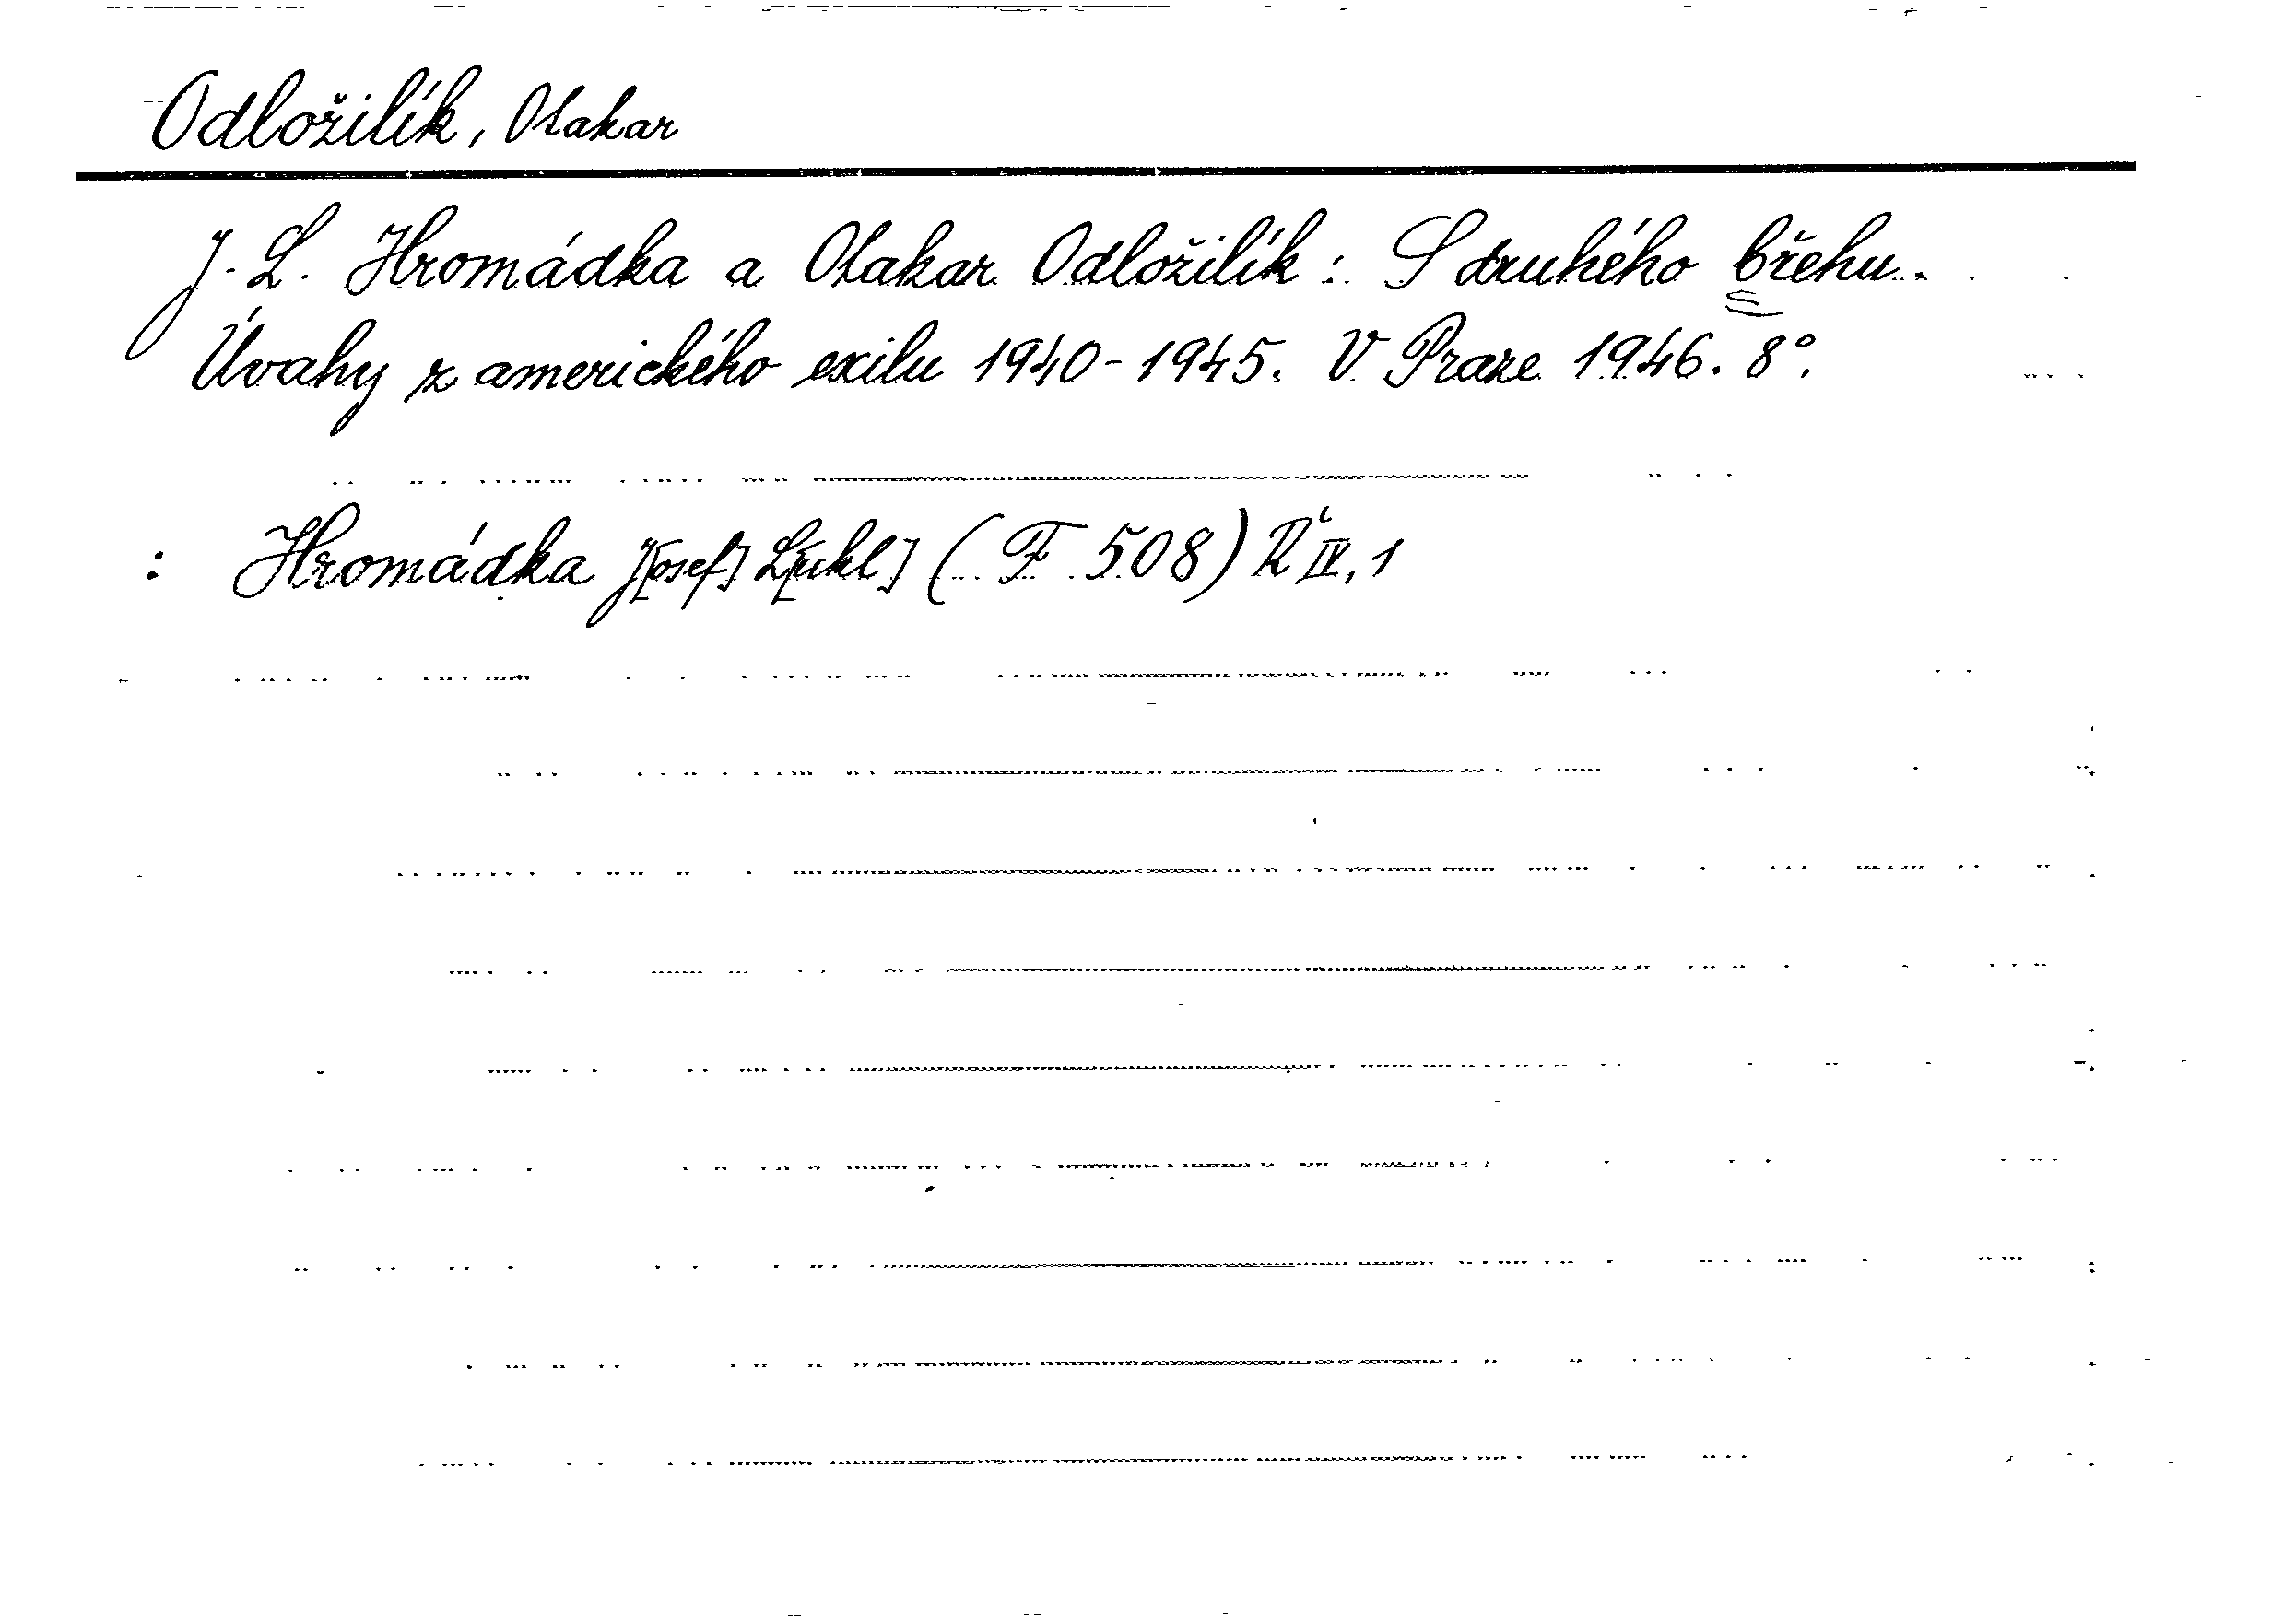 Odložilík, Otakar
J. L. Hromádka a Otakar Odložilík: S druhého břehu.
Úvahy z amerického exilu 1940-1945. V Praze 1946. 8°.
: Hromádka J[osef] L[ukl] (F 508) IV, 1